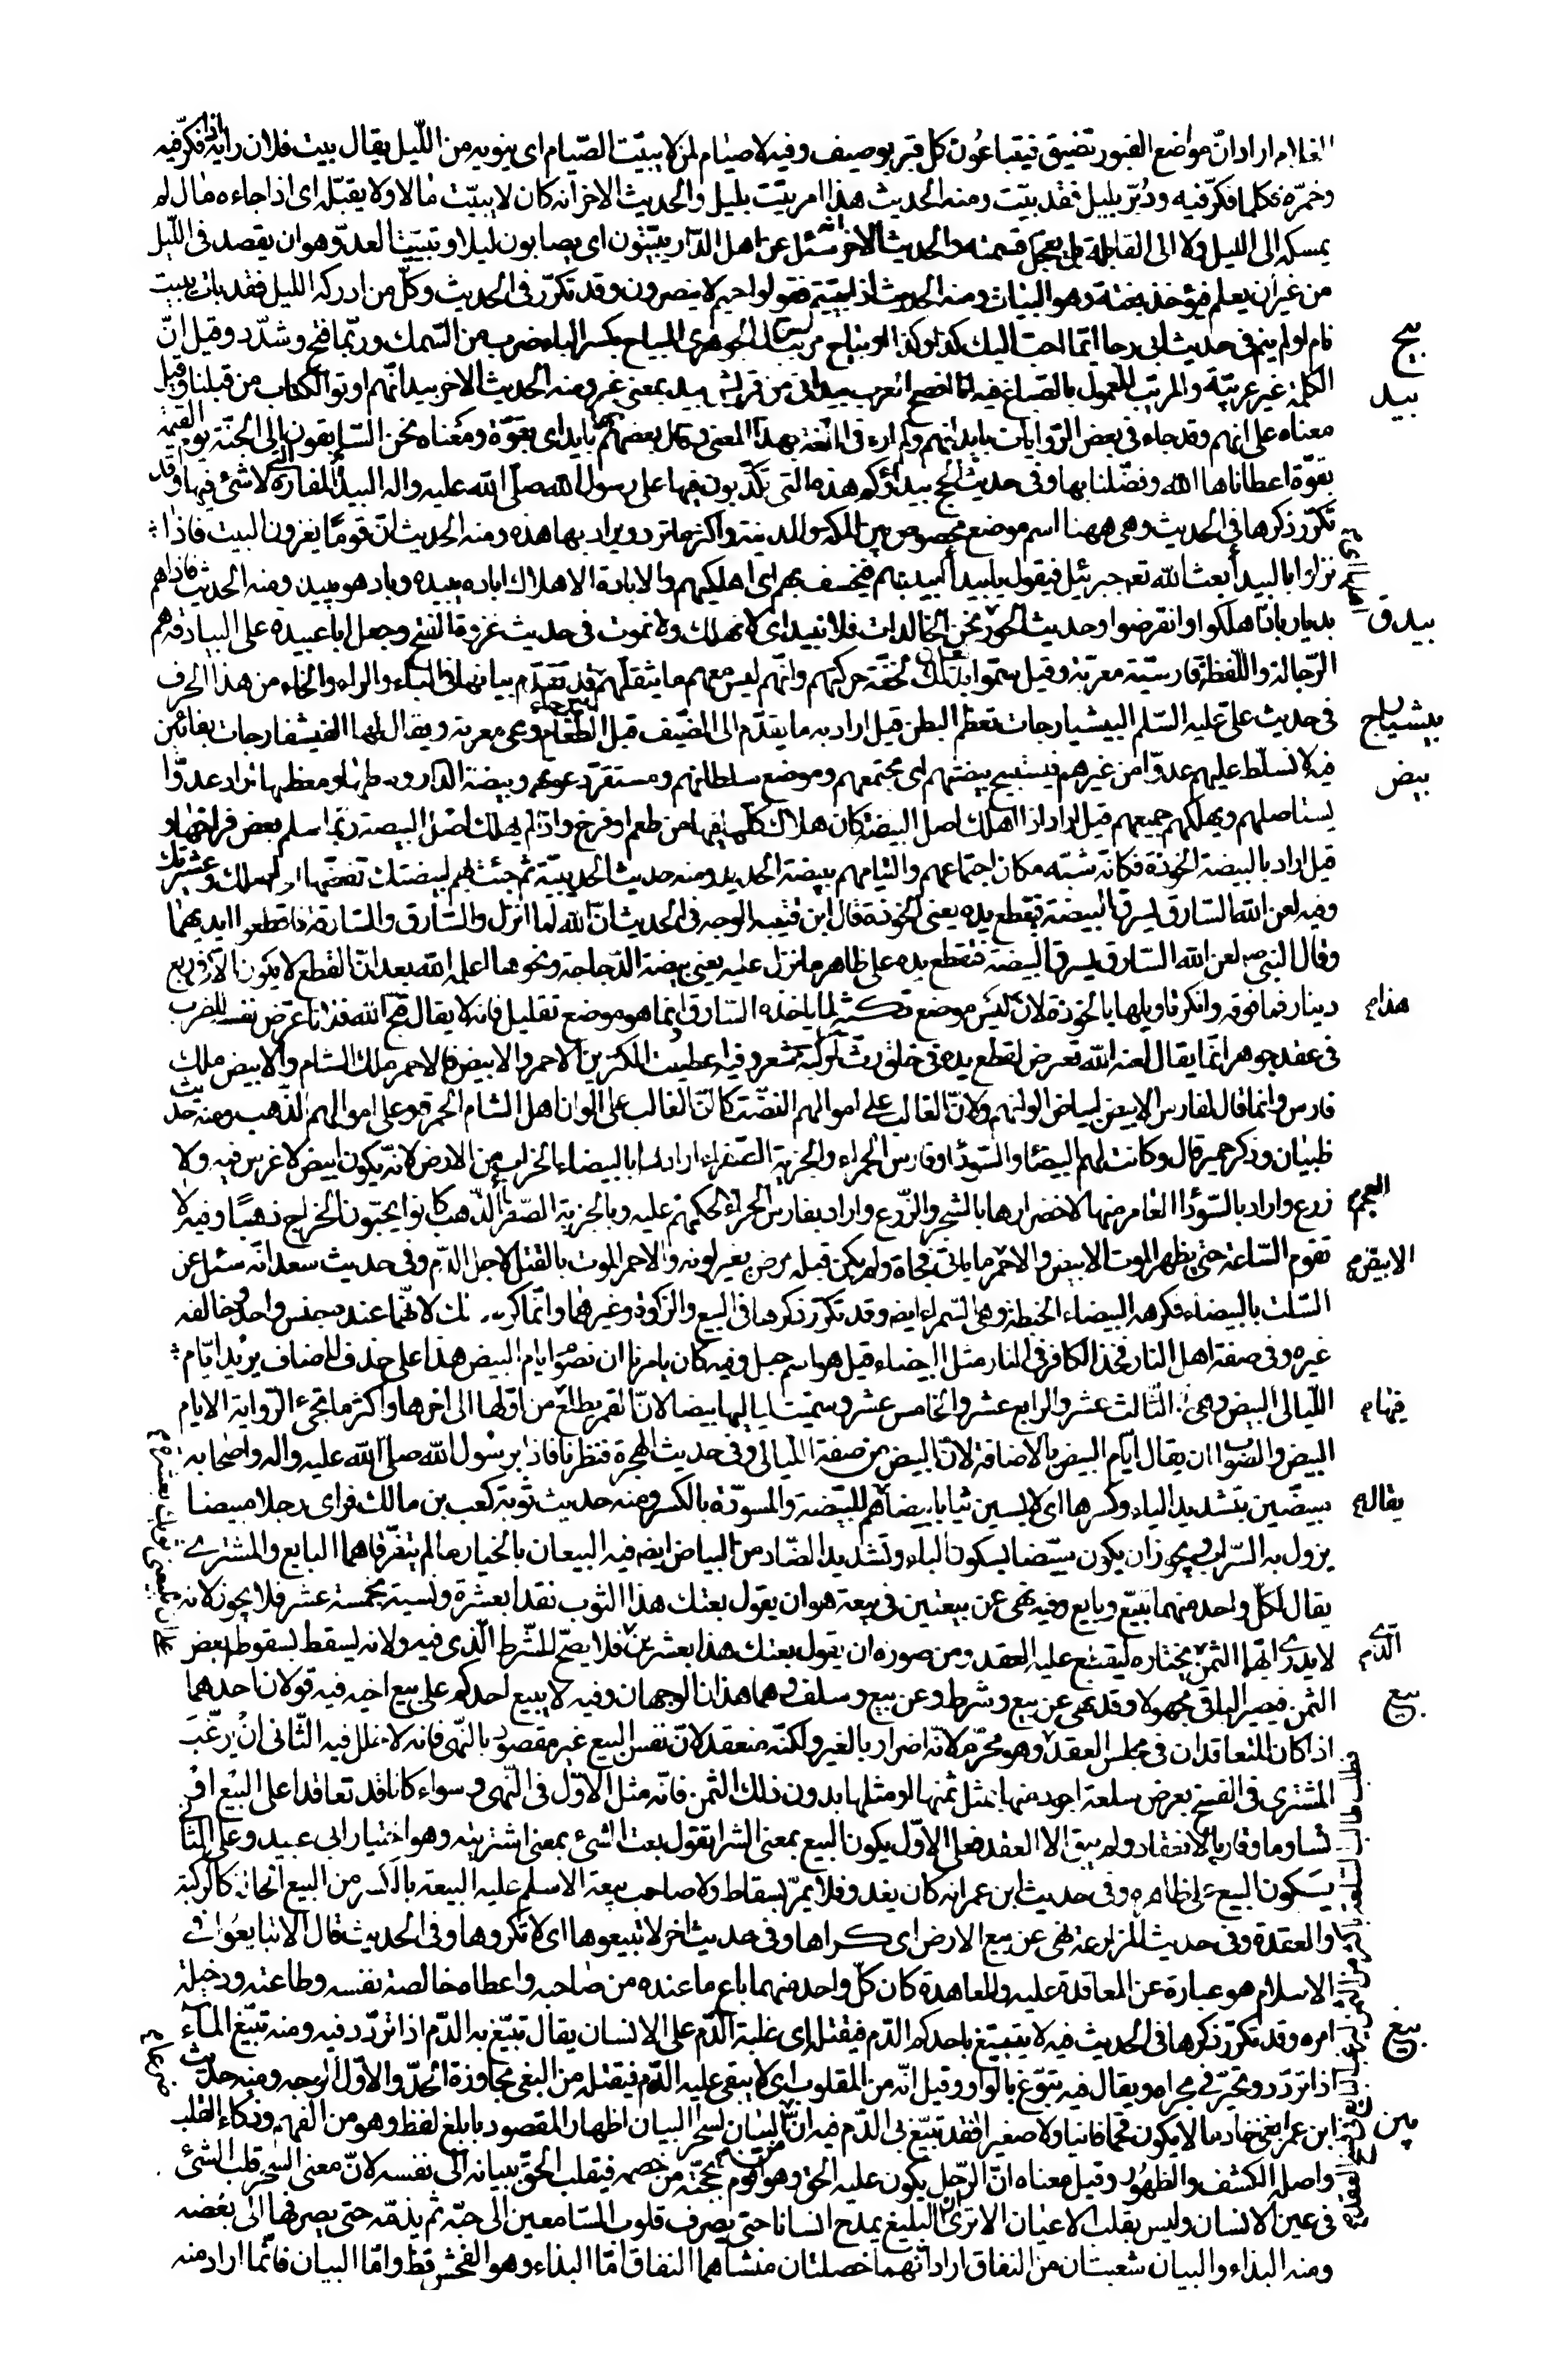 الغلام اراد انّ مواضع القبور تضيق فيتباعُون كل قبر بوصيف وفيه لا صيام لمن لا يبيّت الصّيام اى ينويه من اللّيل يقال بيت فلان رايه اذا فكّر فيه
وخمّره فكلما فكّر فيه ودُبّر بليل فقد بيّت ومنه الحديث هذا امر بيّت بليل والحديث الاخر انه كان لا يبيّت مالا ولا يقبّله اى اذا جاءه مال لم
يمسكه الى الليل ولا الى القايلة بل يعجّل قسمته والحديث الاخر انه سئل عن اهل الدّار يبيّتون اى يصابون ليلا وتبييت العدوّ هو ان يقصد فى اللّيل
من غير ان يعلم فيؤخذ بغتة وهو البيات ومنه الحديث اذا بيّتم فقولوا حم لا ينصرون وقد تكرّر فى الحديث وكلّ من ادركه الليل فقد بات يبيت
نام او لم ينم فى حديث ابى رجا ايّما احبّ اليك كذا وكذا او بياح مربّب قال الجوهرى البياح بكسر الباء ضرب من السّمك وربّما فتح وشدّد وقيل انّ
بيح
الكلمة غير عربيّة والمربّب المعمول بالصّباغ فيه انا افصح العرب بيد انى من قريش بيد بمعنى غير ومنه الحديث الاخر بيد انّهم اوتوا الكتاب من قبلنا وقيل
بيد
معناه على انهم وقد جاء فى بعض الرّوايات بايد انهم ولم اره فى اللّغة بهذا المعنى وقال بعضهم انها بايد اى بقوّة ومعناه نحن السّابقون الى الجنّة يوم القيمة
بقوّة اعطاناها الله وفضّلنا بها وفى حديث الحج بيداؤكم هذه التى تكذبون فيها على رسول الله صلّى الله عليه واله البيداء المفازة التى لا شئ فيها وقد
تكرّر ذكرها فى الحديث وهى ههنا اسم موضع مخصوص بين المكة والمدينة واكثر ما ترد ويراد بها هذه ومنه الحديث انّ قومًا يغزون البيت فاذا
نزلوا بالبيدأ بعث الله تعه جبرئيل فيقول يا بيدأ ابيديهم فيخسف بهم اى اهلكيهم والابادة الاهلاك اباده يبيده وباد هو يبيد ومنه الحديث فاذا هم
بديار باد اهلها اى هلكوا وانقرضوا وحديث الحور نحن الخالدات فلا نبيد اى لا نهلك ولا نموت فى حديث غزوة الفتح وجعل ابا عبيدة على البيادقه هم
بيدق
الرّجالة واللّفظة فارسيّة معرّبة وقيل سمّوا بذلك لخفّة حركتهم وانّهم ليس معهم ما يثقلهم قد تقدّم بيانها فى الباء والراء والحاء من هذا الحرف
فى حديث علىّ عليه السّلم البيشيارجات تعظم البطن قيل اراد به ما يقدّم الى الضّيف قبل الطّعام وهى معربة ويقال لها الفيشفارجات بفائين
بيشيارج
فيه لا تسلّط عليهم عدوّا من غيرهم فيستبيح بيضتهم اى مجتمعهم وموضع سلطانهم ومستقرّ دعوتهم وبيضة الدار وسطها ومعظمها اراد عدوّا
بيض
يستاصلهم ويهلكهم جميعهم قيل اراد اذا اهلك اصل البيضة كان هلاك كلّ ما فيها من طعم او فرخ واذا لم يهلك اصل البيضة ربّما سلم بعض فراخها و
قيل اراد بالبيضة الخوذة فكانّه شبّه مكان اجتماعهم والتيامهم ببيضة الحديد ومنه حديث الحديبيّة ثم جئت بهم لبيضتك تفضّها اى اهلك وعشيرتك
وفيه لعن الله السّارق يسرق البيضة فتقطع يده يعنى الخوذة قال ابن قتيبه الوجه فى الحديث انّ الله لما انزل والسّارق والسّارقة فاقطعوا ايديهما
وقال النبى ص لعن الله السّارق يسرق البيضة فتقطع يده على ظاهر ما نزل عليه يعنى بيضة الدّجاجة ونحوها ثم اعلمه الله بعد انّ القطع لا يكون الّا فى ربع
دينار فما فوقه وانكر تاويلها بالخوذة لانّ هذا ليس موضع تكثير لما ياخذه السّارق انما هو موضع تقليل فانه لا يقال قبّح الله فلانا عرّض نفسه للضرب
هذا م
فى عقد جوهر انما يقال لعنه الله تعرض لقطع يده فى خلق رثّ او كبّة شعر وفيه اعطيت الكنزين الاحمر والابيض فالاحمر ملك الشام والابيض ملك
فارس وانما قال لفارس الابيض لبياض الوانهم ولانّ الغالب على اموالهم الفضّة كما انّ الغالب على الوان اهل الشام الحمرة وعلى اموالهم الذّهب ومنه حديث
ظبيان وذكر حمير قال وكانت لهم البيضاء والسّودا وفارس الحمراء والجزية الصّفراء اراد بالبيضاء الخراب من الارض لانّه يكون ابيض لا غرس فيه ولا
زرع واراد بالسّودا العامر منها لاخضرارها بالشجر والزّرع واراد بفارس الحمراء لحكمهم عليه وبالجزية الصّفراء الذّهب كانوا يجبون الخراج ذهبًا وفيه لا
العجم م
تقوم السّاعة حتى يظهر الموت الابيض والاحمر ما ياتى فجاة ولم يكن قبله مرض يغير لونه والاحمر الموت بالقتل لاجل الدّم وفى حديث سعد انّه سئل عن
الابيض م
السّلت بالبيضاء فكرهه البيضاء الحنطة وهى السّمراء ايضه وقد تكرّر ذكرها فى البيع والزكوة وغيرهما وانّما كره ذلك لانّهما عنده جنس واحد وخالفه
غيره وفى صفة اهل النار فخذ الكافر فى النار مثل البيضاء قيل هو اسم جبل وفيه كان يامرنا ان نصوم ايام البيض هذا على حذف المضاف يريد ايّام
اللّيالى البيض وهى الثّالث عشر والرابع عشر والخامس عشر وسميت لياليها بيضا لانّ القمر يطلع من اوّلها الى اخرها واكثر ما تجئ الرّواية الايام
فيها م
البيض والصّواب ان يقال ايّام البيض بالاضافة لانّ البيض من صفة الليالى وفى حديث الهجرة فنظرنا فاذا برسول الله صلى الله عليه واله واصحابه
مبيضّين بتشديد الياء وكسرها اى لابسين ثيابا بيضا هم المبيّضة والمسوّدة بالكسر ومنه حديث توبة كعب بن مالك فراى رجلا مبيضا
يقال م
يزول به السّراب ويجوز ان يكون مبيّضا بسكون الباء وتشديد الضّاد من البياض ايضه فيه البيعان بالخيار ما لم يتفرّقا هما البايع والمشترى
يقال لكلّ واحد منهما بيّع وبايع وفيه نهى عن بيعتين فى بيعة هو ان يقول بعتك هذا الثوب نقدا بعشرة ونسية بخمسة عشر فلا يجوز لانه
لا يدرى ايّهما الثمن يختاره ليقع عليه العقد ومن صوره ان يقول بعتك هذا بعشرين فلا يصحّ للشّرط الّذى فيه ولانه يسقط بسقوطه بعض
الّذى م
الثمن فيصير الباقى مجهولا وقد نهى عن بيع وشرط وعن بيع وسلف وهما هذان الوجهان وفيه لا يبيع احدكم على بيع اخيه فيه قولان احدهما
بيع
اذا كان المتعاقدان فى مجلس العقد وهو محرّم لانّه اضرار بالغير ولكنّه منعقد لانّ نفس البيع غير مقصود بالنّهى فانه لا خلل فيه الثّانى ان يرغّب
المشترى فى الفسخ بعرض سلعة اجود منها بمثل ثمنها او مثلها بدون ذلك الثمن فانّه مثل الاوّل فى النّهى وسواء كانا قد تعاقدا على البيع او
تساوما وقاربا الانعقاد ولم يبق الا العقد فعلى الاوّل يكون البيع بمعنى الشرا تقول بعت الشئ بمعنى اشتريته وهو اختيار ابى عبيد وعلى الثّانى
يكون البيع على ظاهره وفى حديث ابن عمر انه كان يغدو فلا يمرّ بسقاط ولا صاحب بيعة الا سلم عليه البيعة بالكسر من البيع الحالة كالركبة
والعقدة وفى حديث المزارعة نهى عن بيع الارض اى كراها وفى حديث اخر لا تبيعوها اى لا تكروها وفى الحديث قال الا تبايعونى
الاسلام هو عبارة عن المعاقدة عليه والمعاهدة كان كلّ واحد منهما باع ما عنده من صاحبه واعطاه خالصة نفسه وطاعته ودخيلة
امره وقد تكرّر ذكرها فى الحديث فيه لا يتبيّغ باحدكم الدّم فيقتله اى غلبة الدّم على الانسان يقال تبيّغ به الدّم اذا تردّد فيه ومنه تبيّغ الماء
بيغ
اذا تردّد وتحيّر فى مجراه ويقال فيه تبوّغ بالواو وقيل انّه من المقلوب اى لا يبغى عليه الدّم فيقتله من البغى مجاوزة الحدّ والاوّل الوجه ومنه حديث
ابن عمر ابغنى خادما لا يكون قحما فانيا ولا صغيرا فقد تبيّغ بى الدّم فيه انّ من البيان لسحرا البيان اظهار المقصود بابلغ لفظ وهو من الفهم وذكاء القلب
بين
واصله الكشف والظهور وقيل معناه انّ الرّجل يكون عليه الحق وهو اقوم بحجّته من خصمه فيقلب الحقّ ببيانه الى نفسه لانّ معنى السّحر قلب الشئ
فى عين الانسان وليس بقلب الاعيان الا ترى ان البليغ يمدح انسانا حتى يصرف قلوب السّامعين الى حبّه ثم يذمّه حتى يصرفها الى بغضه
ومنه البذاء والبيان شعبتان من النفاق اراد انهما خصلتان منشاهما النفاق امّا البذاء وهو الفحش فظ وامّا البيان فانّما اراد منه